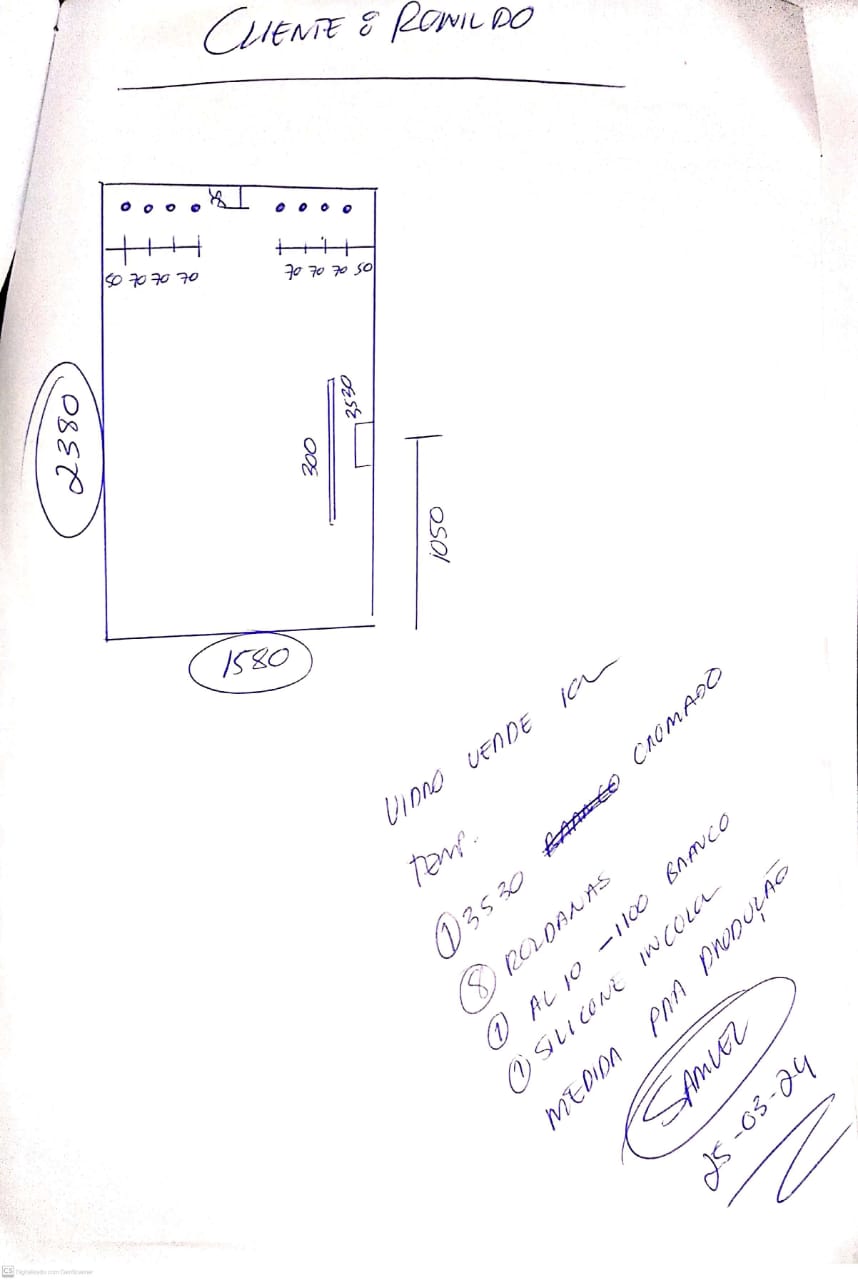 CLIENTE: RONILDO
50 70 70 70
70 70 70 50
2380
300
3530
1050
1580
VIDRO VERDE
TEMP.
1 3530 CROMADO
8 ROLDANAS
1 AL 10 - 1100 BRANCO
1 SILICONE INCOLOR
MEDIDA PRA PRODUÇÃO
SAMUEL
25-03-24
CS Digitalizado com CamScanner